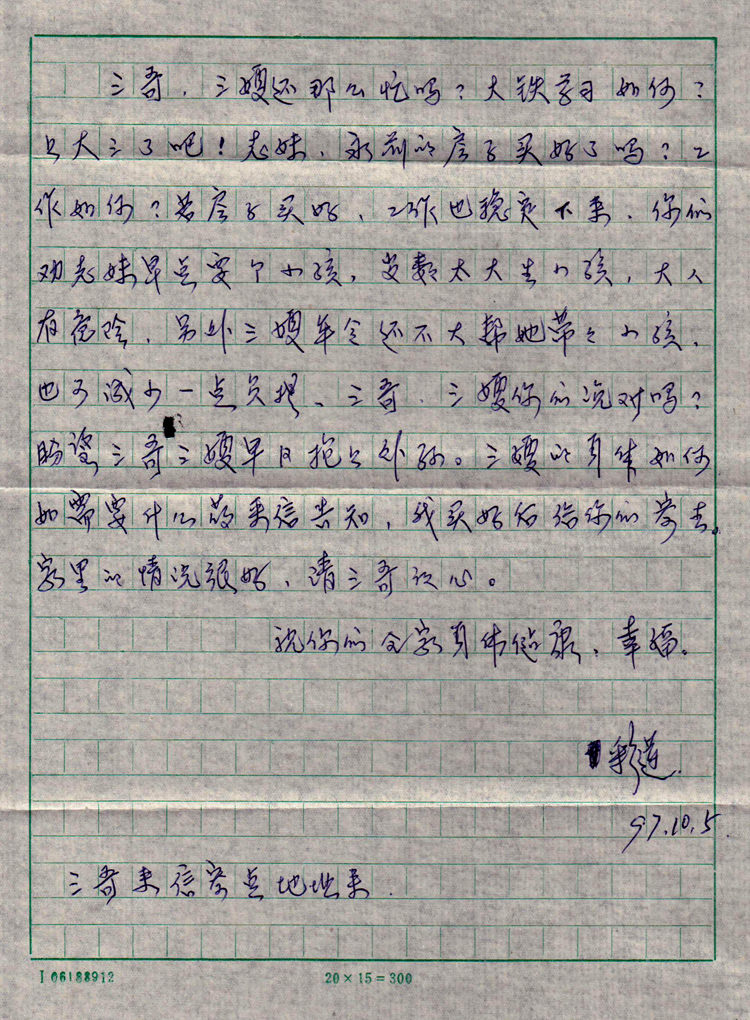 三哥、三嫂还那么忙吗？大铁学习如何？
上大三了吧！志妹、永前的房子买好了吗？工
作如何？若房子买好、工作也稳定下来、你们
劝志妹早点要个小孩，岁数太大生小孩，大人
有危险、另外三嫂年令还不大帮她带带小孩、
也可减少一点负担、三哥、三嫂你们说对吗？
盼望三哥三嫂早日抱上外孙。三嫂的身体如何
如需要什么药来信告知，我买好后给你们寄去。
家里的情况很好、请三哥放心。
祝你们全家身体健康、幸福。
彩莲
97.10.5
三哥来信寄点地址来.
I 06188912 20×15=300